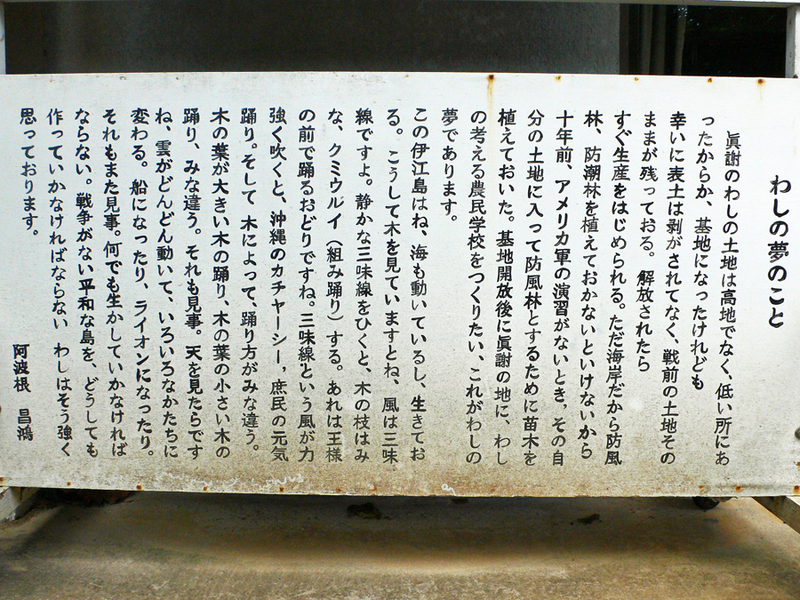 わしの夢のこと
眞謝のわしの土地は高地でなく、低い所にあ
ったからか、基地になったけれども
幸いに表土は剥がされてなく、戦前の土地その
ままが残っておる。解放されたら
すぐ生産をはじめられる。ただ海岸だから防風
林、防潮林を植えておかないといけないから
十年前、アメリカ軍の演習がないとき，その自
分の土地に入って防風林とするために苗木を
植えておいた。基地開放後に眞謝の地に、わし
の考える農民学校をつくりたい、これがわしの
夢であります。
この伊江島はね、海も動いているし、生きてお
る。こうして木を見ていますとね、風は三味
線ですよ。静かな三味線をひくと、木の枝はみ
な、クミウルイ（組み踊り）する。あれは王様
の前で踊るおどりですね。三味線という風が力
強く吹くと、沖縄のカチャーシー，庶民の元気
踊り。そして 木によって、踊り方がみな違う。
木の葉が大きい木の踊り、木の葉の小さい木の
踊り、みな違う。それも見事。天を見たらです
ね、雲がどんどん動いて、いろいろなかたちに
変わる。船になったり、ライオンになったり。
それもまた見事。何でも生かしていかなければ
ならない。戦争がない平和な島を、どうしても
作っていかなければならない わしはそう強く
思っております。
阿波根 昌鴻